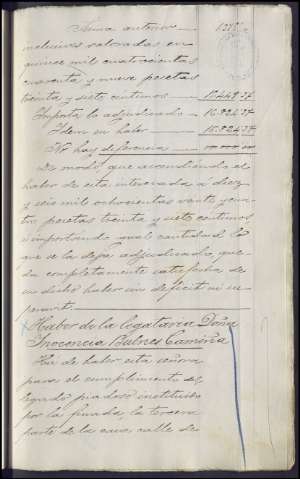 Suma anterior 1375
inclusives valoradas en
quince mil cuatrocientas
cuarenta y nueve pesetas
treinta y siete centimos 15.449'37
Importa lo adjudicado 16.824'37
Idem su haber 16.824'37
No hay diferencia 00.000'00
De modo que ascendiendo el
haber de esta interesada á diez
y seis mil ochocientas veinte y cua-
tro pesetas treinta y siete centimos
é importando igual cantidad lo
que se la deja adjudicado, que-
da completamente satisfecha de
su dicho haber sin deficit ni su-
peravit.
Haber de la legataria Doña
Inocencia Bulnes Camiña
Ha de haber esta señora
para el cumplimiento del
legado piadoso instituido
por la finada, la tercera
parte de la casa calle de